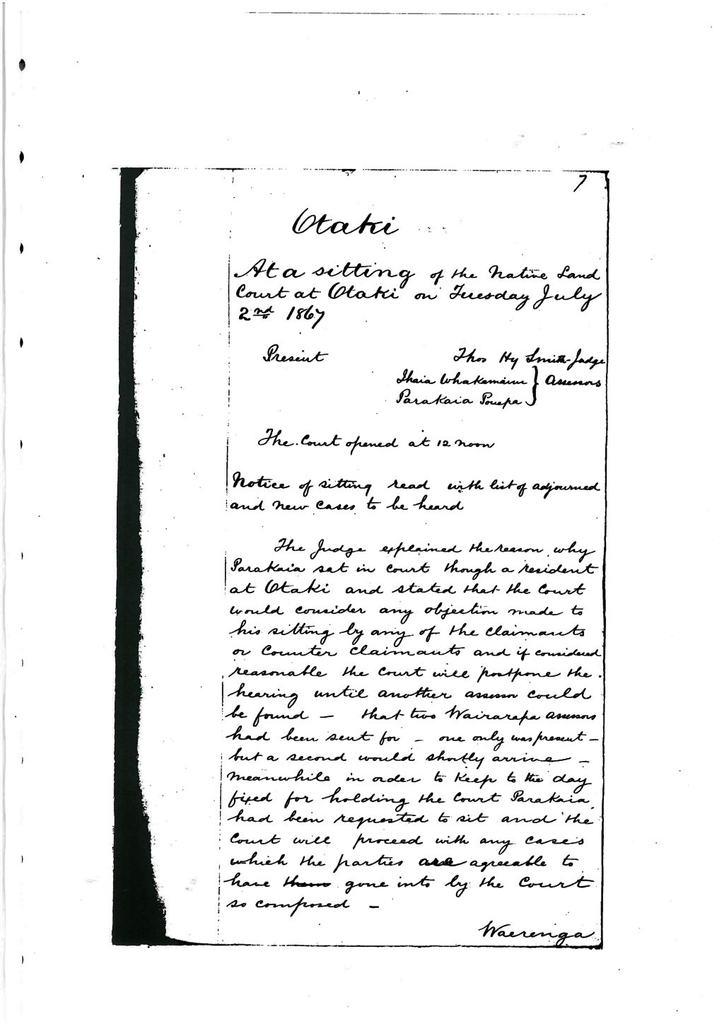 7
Otaki
At a sitting of the Native Land
Court at Otaki on Tuesday July
2nd 1867
Present Thos Hy Smith Judge
Ihaia Whakamairu } Assessors
Parakaia Pouepa
The Court opened at 12 noon
Notice of sitting read with list of adjourned
and new cases to be heard
The Judge explained the reason why
Parakaia sat in Court though a resident
at Otaki and stated that the Court
would consider any objection made to
his sitting by any of the Claimants
or Counter Claimants and if considered
reasonable the Court will postpone the
hearing until another assessor could
be found – that two Wairarapa assessors
had been sent for – one only was present –
but a second would shortly arrive –
Meanwhile in order to keep to the day
fixed for holding the Court Parakaia
had been requested to sit and the
Court will proceed with any cases
which the parties are agreeable to
have them gone into by the Court
so composed –
Waerenga